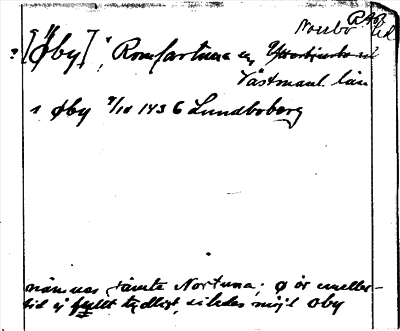 Norrbo RAÖ
? [Öby], Romfartuna sn, Yttertjurbo hd
Västmanl. län
i øby 7/10 1436 Lundboberg
nämnes jämte Nortuna; ø är emeller-
tid ej fullt tydligt, således möjl oby